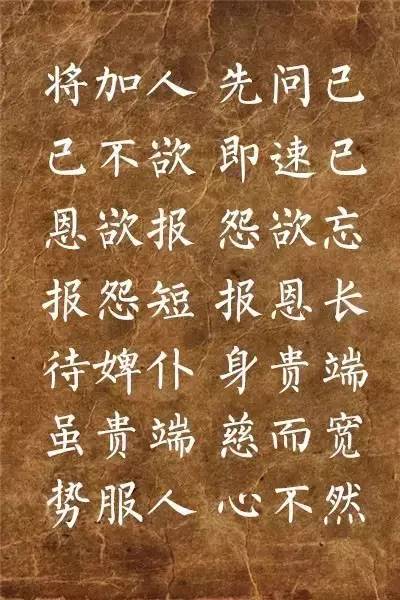 将加人 先问己
己不欲 即速已
恩欲报 怨欲忘
报怨短 报恩长
待婢仆 身贵端
虽贵端 慈而宽
势服人 心不然